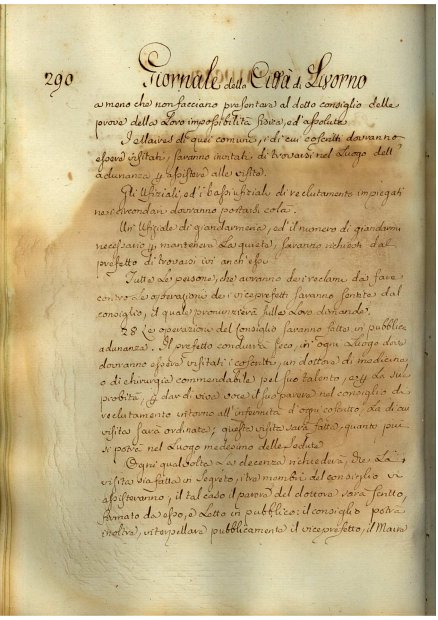 290 Giornale della Città di Livorno
a meno che non facciano presentare al detto consiglio delle
prove della Loro impossibilità fisica, ed assoluta.
I Maires di quei comuni, i di cui coscritti dovranno
essere visitati, saranno invitati di trovarsi nel Luogo dell'
adunanza p assistere alle visite.
Gli Ufiziali, ed i bassi ufiziali di reclutamento impiegati
nei circondari dovranno portarsi colà.
Un' Ufiziale di giandarmeria, ed il numero di giandarmi
necessario p mantenere La quiete, saranno richiesti dal
prefetto di trovarsi ivi anch' essi.
Tutte Le persone, che avranno dei reclami da fare
contro Le operazioni dei viceprefetti saranno sentite dal
consiglio, il quale pronunzierà sulle Loro dimande.
28. Le operazioni del Consiglio saranno fatte in pubblica
adunanza. Il prefetto condurrà seco, in ogni Luogo dove
dovranno essere visitati i coscritti, un dottore di medicina,
o di chirurgia commendabile pel suo talento, e p La sua
probità, p dar di viva voce il suo parere nel consiglio di
reclutamento intorno all' infermità d'ogni coscritto, La di cui
visita sarà ordinata; questa visita sarà fatta, quanto più
si potrà nel Luogo medesimo delle sedute.
Ogni qualvolta La decenza richiederà, che La
visita sia fatta in segreto, i tre membri del consiglio vi
assisteranno, il tal caso il parere del dottore sarà scritto,
firmato da esso, e Letto in pubblico: il consiglio potrà
inoltre, interpellare pubblicamente il viceprefetto, il Maire